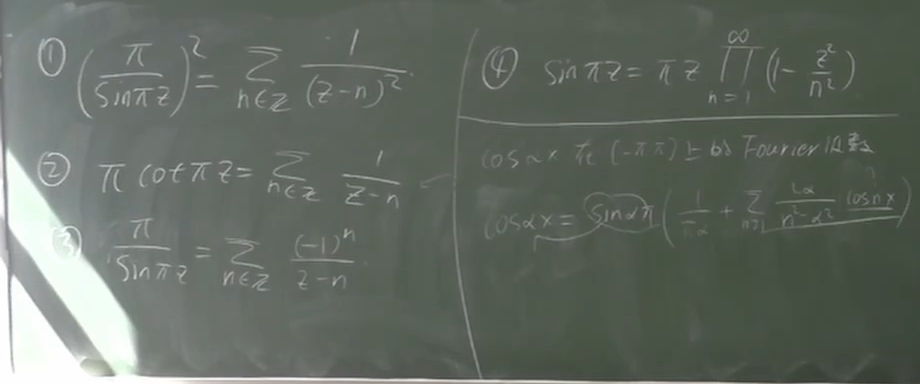 ① (π/sinπz)² = Σ_{n∈Z} 1/(z-n)²
② π cotπz = Σ_{n∈Z} 1/(z-n)
③ π/sinπz = Σ_{n∈Z} (-1)ⁿ/(z-n)
④ sinπz = πz ∏_{n=1}^{∞} (1 - z²/n²)
cosαx 在 (-π π) 上的 Fourier 级数
cosαx = sinαπ (1/πα + Σ_{n≥1} 2α/(n²-α²) cosnx)